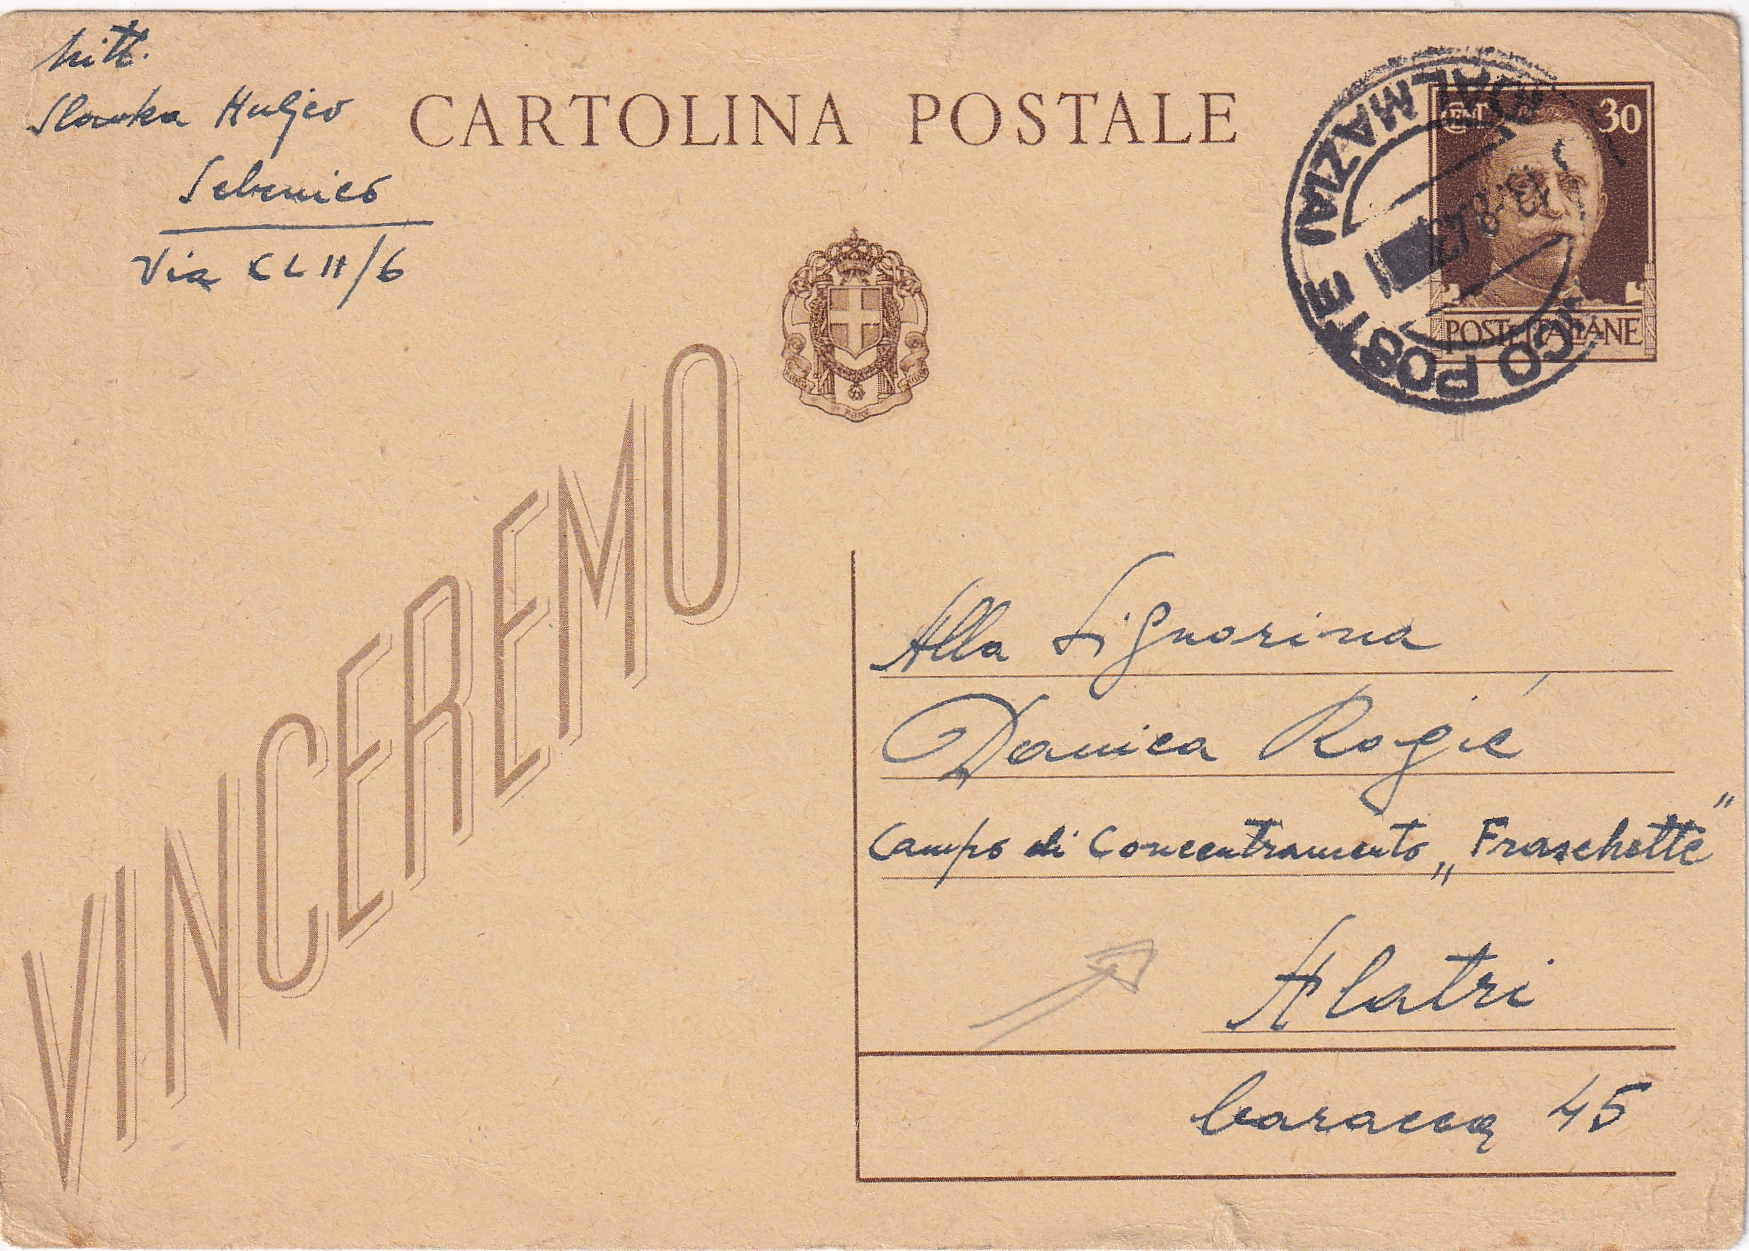 Mitt.
Slavka Huljev
Sebenico
Via CLII/6
CARTOLINA POSTALE
CENT 30
POSTE ITALIANE
POSTE DALMAZIA
13.8.43
VINCEREMO
Alla Signorina
Danica Rogić
Campo di Concentramento „Fraschette”
Alatri
baracca 45